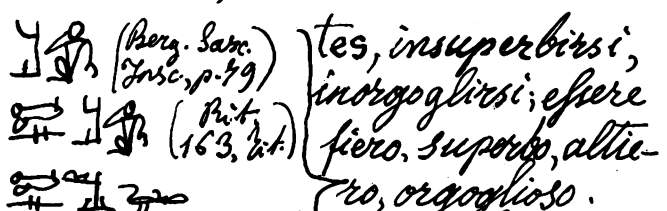 (Berg. Sarc.
Insc., p. 79)
(Rit.
163, tit.)
tes, insuperbirsi,
inorgoglirsi; eſsere
fiero, superbo, altie-
ro, orgoglioso.